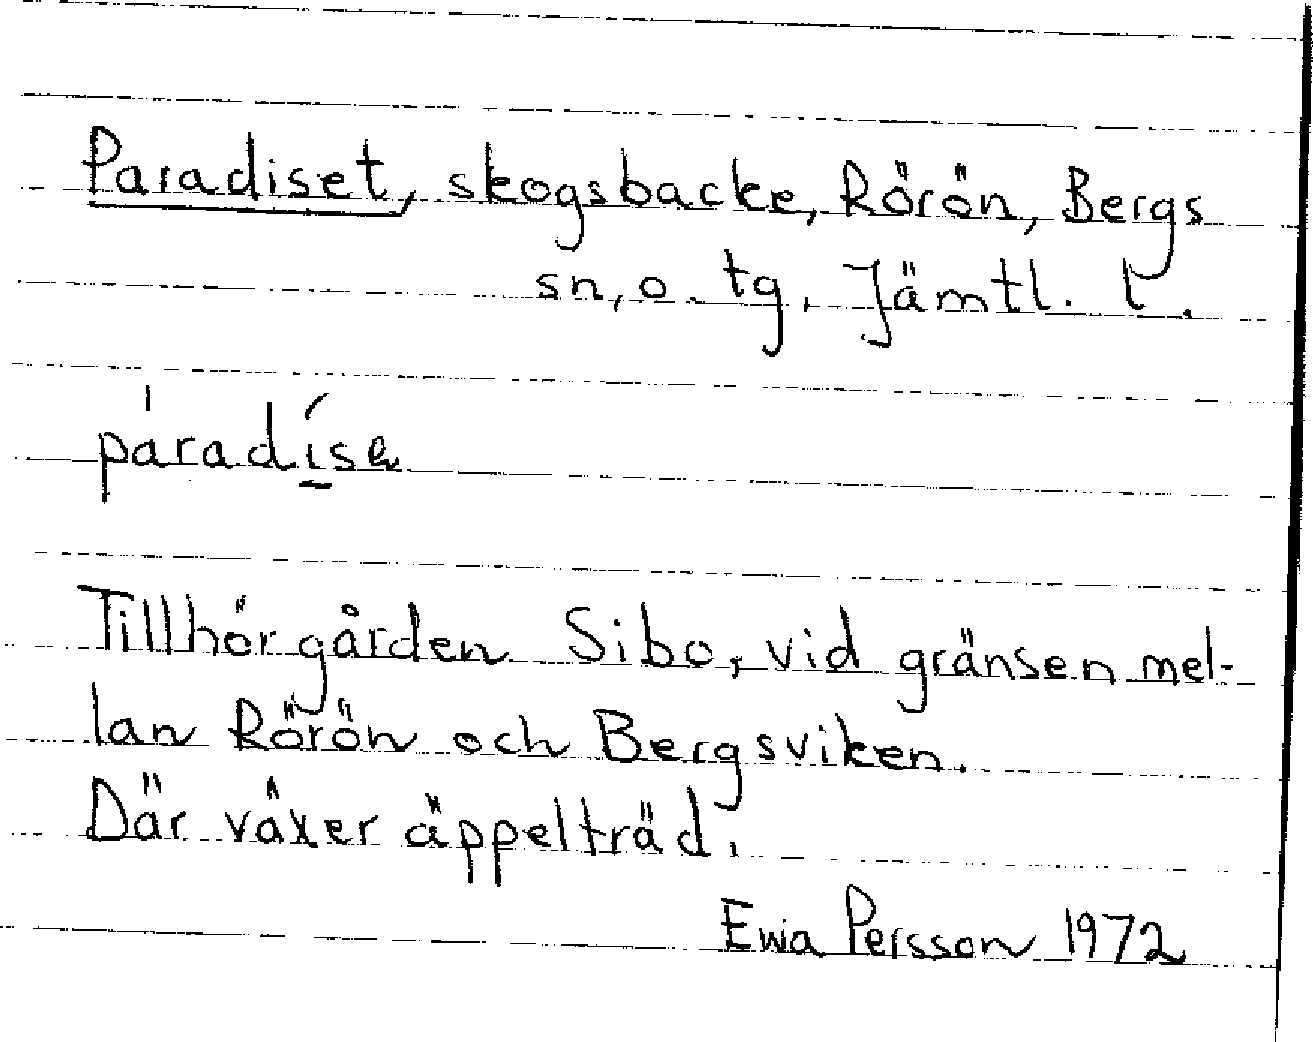 Paradiset, skogsbacke, Rörön, Bergs
sn, o. tg, Jämtl. l.
páradísa
Tillhör gården Sibo, vid gränsen mel-
lan Rörön och Bergsviken.
Där växer äppelträd.
Ewa Persson 1972